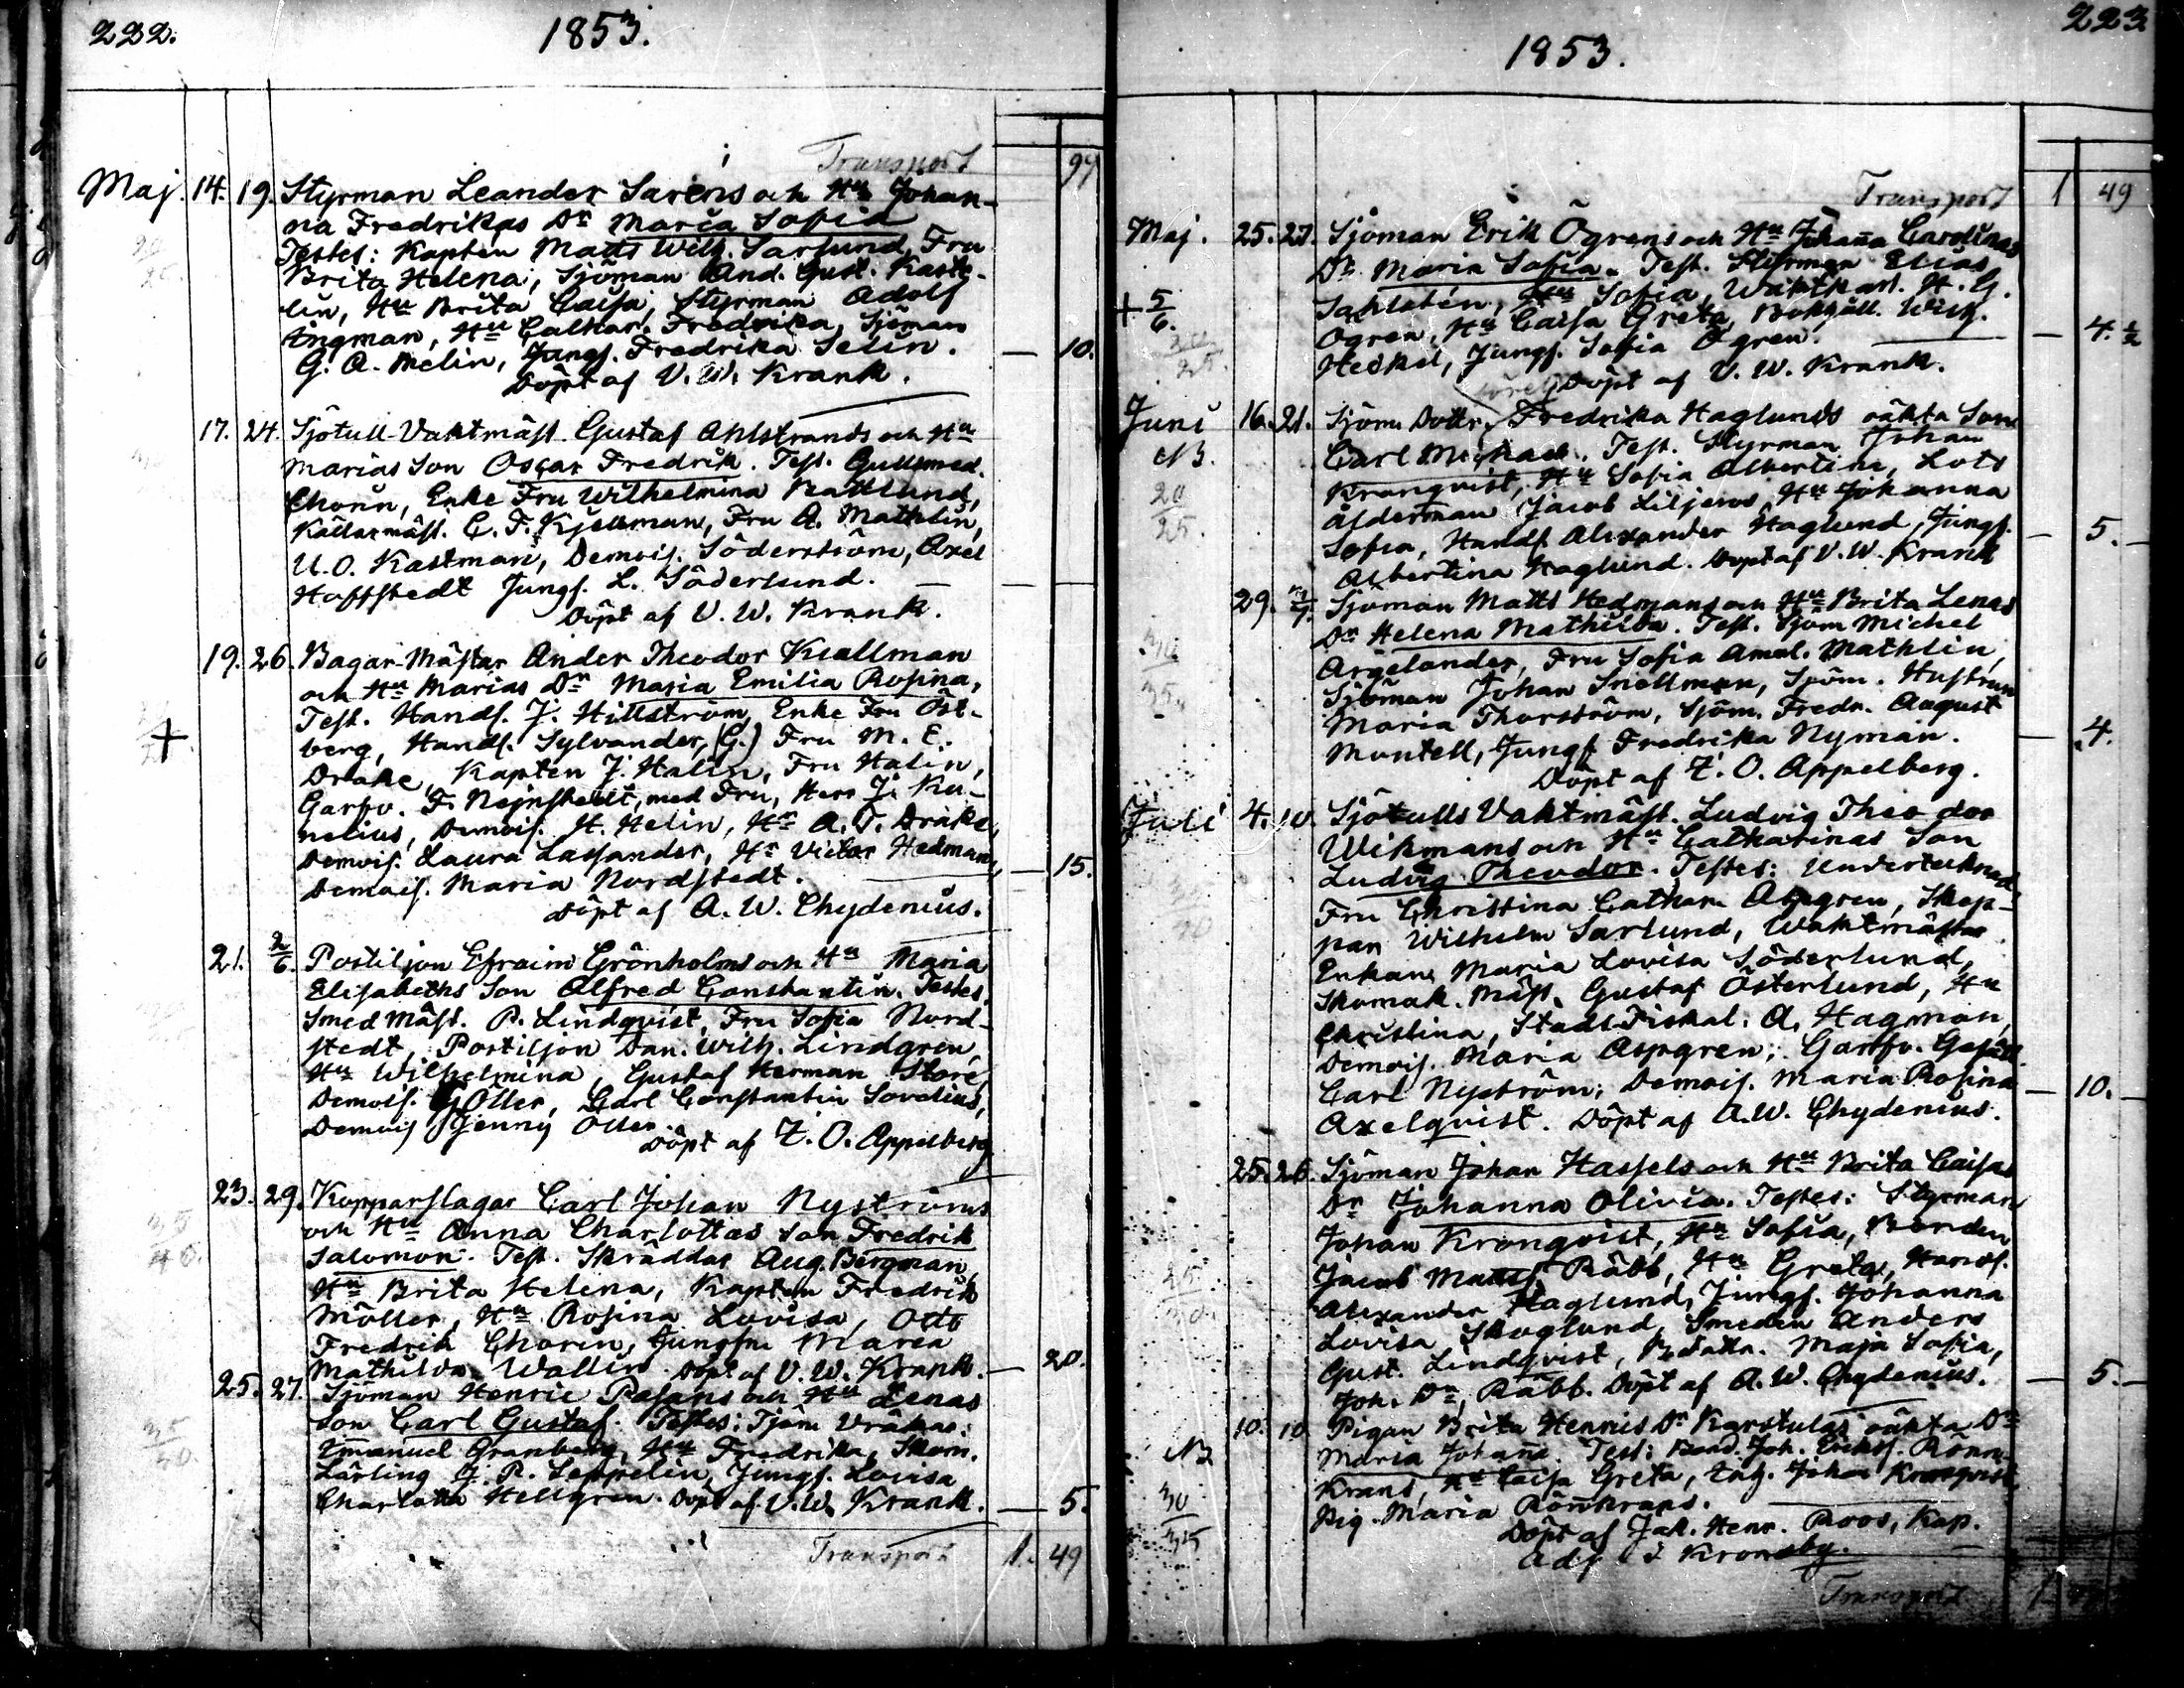 222.
1853.
Transport 99
Maj. 14. 19. Styrman Leander Sarens och Hu Johan-
na Fredrikas Dr Maria Sofia
Testes: Kapten Matts Wilh. Sarlund, Fru
Brita Helena, Sjöman And. Gust. Kaste-
lin, Hu Brita Caisa, Styrman Adolf
Engman, Hu Cathar. Fredrika, Sjöman
G. A. Melin, Jungf. Fredrika Selin. — 10.
Döpt af V. W. Krank.
17. 24. Sjötull-Vaktmäst. Gustaf Ahlstrands och Hu
Marias Son Oscar Fredrik. Test. Gullsmed.
Chorin, Enke Fru Wilhelmina Backlund,
Källarmäst. C. F. Kjellman, Fru A. Mathlin,
U. O. Kastman, Demois. Söderström, Axel
Hoffstedt Jungf. L. Söderlund. —
Döpt af V. W. Krank.
19. 26. Bagar-Mästar Ander Theodor Kiallman
och Hu Marias Dr Maria Emilia Rosina,
Test. Handl. J. Hillström, Enke Fru Öst-
berg, Handl. Sylvander, (G.) Fru M. E.
Drake, Kapten J. Halin, Fru Halin,
Garfv. F. Nejnstedt, med Fru, Herr J. Ku-
nelius, Demois. H. Helin, Hr A. T. Drake,
Demois. Laura Lassander, Hr Victor Hedman,
Demois. Maria Nordstedt. — 15.
Döpt af A. W. Chydenius.
21. 2/6. Postiljon Efraim Grönholms och Hu Maria
Elisabeths Son Alfred Constantin. Testes
Smed Mäst. P. Lindqvist, Fru Sofia Nord-
stedt, Postiljon Dan. Wilh. Lindgren,
Hu Wilhelmina, Gustaf Herman Store,
Demois. G Öller, Carl Constantin Sovelius,
Demois Jenny Öller.
Döpt af Z. O. Appelberg
23. 29. Kopparslagar Carl Johan Nyströms
och Hu Anna Charlottas Son Fredrik
Salomon. Test. Skräddar Aug. Bergman,
Hu Brita Helena, Kapten Fredrik
Möller, Hu Rosina Lovisa, Otto
Fredrik Chorin, Jungfru Maria
Mathilda Wallin. Döpt af V. W. Krank. — 20.
25. 27. Sjöman Henric Pasans och Hu Lenas
Son Carl Gustaf. Testes: Tjärn Vräkar:
Emanuel Granberg, Hu Fredrika, Skom.
Lärling J. P. Leppelin, Jungf. Lovisa
Charlotta Hellgren. Döpt af V. W. Krank. — 5.
Transport 1. 49
223
1853.
Transport 1 49
Maj. 25. 27. Sjöman Erik Ögrens och Hu Johanna Carolinas
Dr Maria Sofia. Test. Styrman Elias
+ 5/6. Sahlstén, Hu Sofia, Waktkarl. H. G.
Ögren, Hu Caisa Greta, Bokhåll. Wilh.
Heikel, Jungf. Sofia Ögren. — 4. 1/2
Döpt af V. W. Krank.
Juni 16. 21. Sjöm. Dottr. Fredrika Haglunds oäkta Son
NB. Carl Michael. Test. Styrman Johan
20/25. Kronqvist, Hu Sofia Albertina, Lots
ålderman Jacob Liljeros, Hu Johanna
Sofia, Handl. Alexander Haglund, Jungf.
Albertina Haglund. Döpt af V. W. Krank — 5.
29. Sjöman Matts Hedmans och Hu Brita Lenas
Dr Helena Mathilda. Test. Sjöm Michel
Argelander, Fru Sofia Amal. Mathlin,
Sjöman Johan Snellman, Sjöm. Hustrun
Maria Thorström, Sjöm. Fredr. August
Montell, Jungf. Fredrika Nyman. — 4.
Döpt af Z. O. Appelberg.
Juli 4. 10. Sjötulls Vaktmäst. Ludvig Theodor
Wikmans och Hu Catharinas Son
Ludvig Theodor. Testes: Undertecknad
Fru Christina Cathar. Aspgren, Skep-
par Wilhelm Sarlund, Waktmästar
Enkan Maria Lovisa Söderlund,
Skomak. Mäst. Gustaf Österlund, Hu
Christina, Stads Fiskal. A. Hagman,
Demois. Maria Aspgren; Garfv. Gesäll.
Carl Nyström; Demois. Maria Rosina — 10.
Axelqvist. Döpt af A. W. Chydenius.
25. 26. Sjöman Johan Hassels och Hu Brita Caisas
Dr Johanna Olivia. Testes: Styrman
Johan Kronqvist, Hu Sofia, Bonden
Jacob Matts. Räbb, Hu Greta, Handl.
Alexander Haglund, Jungf. Johanna
Lovisa Skoglund, Smeden Anders
Gust. Lindqvist, B. dottr. Maja Sofia,
Joh. Dr Räbb. Döpt af A. W. Chydenius. — 5.
10. 10 Pigan Brita Henrics Dr Karstulas oäkta Dr
NB Maria Johana. Test: Bond. Joh. Eriks. Rönn-
krans, Hu Caisa Greta, Johan Kronqvist,
30/35 Pig. Maria Rönnkrans.
Döpt af Jak. Henr. Roos, Kap.
Adj i Kronoby.
Transport 1